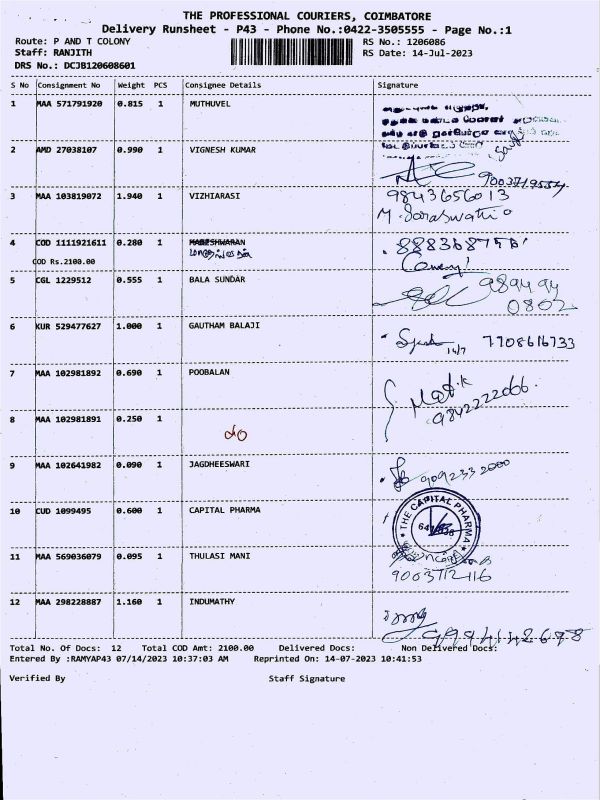 THE PROFESSIONAL COURIERS, COIMBATORE
Delivery Runsheet - P43 - Phone No.:0422-3505555 - Page No.:1
Route: P AND T COLONY RS No.: 1206086
Staff: RANJITH RS Date: 14-Jul-2023
DRS No.: DCJB120608601
S No Consignment No Weight PCS Consignee Details Signature
1 MAA 571791920 0.815 1 MUTHUVEL
2 AMD 27038107 0.990 1 VIGNESH KUMAR
9003719554
3 MAA 103819072 1.940 1 VIZHIARASI 9843656013
M. Saraswathi
4 COD 1111921611 0.280 1 MAGESHWARAN
COD Rs.2100.00
5 CGL 1229512 0.555 1 BALA SUNDAR 989494
0802
6 KUR 529477627 1.000 1 GAUTHAM BALAJI
14/7 7708616733
7 MAA 102981892 0.690 1 POOBALAN
9842222066.
8 MAA 102981891 0.250 1
do
9 MAA 102641982 0.090 1 JAGDHEESWARI 9092332000
10 CUD 1099495 0.600 1 CAPITAL PHARMA THE CAPITAL PHARMA
11 MAA 569036079 0.095 1 THULASI MANI
9003712116
12 MAA 298228887 1.160 1 INDUMATHY
9994142698
Total No. Of Docs: 12 Total COD Amt: 2100.00 Delivered Docs: Non Delivered Docs:
Entered By :RAMYAP43 07/14/2023 10:37:03 AM Reprinted On: 14-07-2023 10:41:53
Verified By Staff Signature